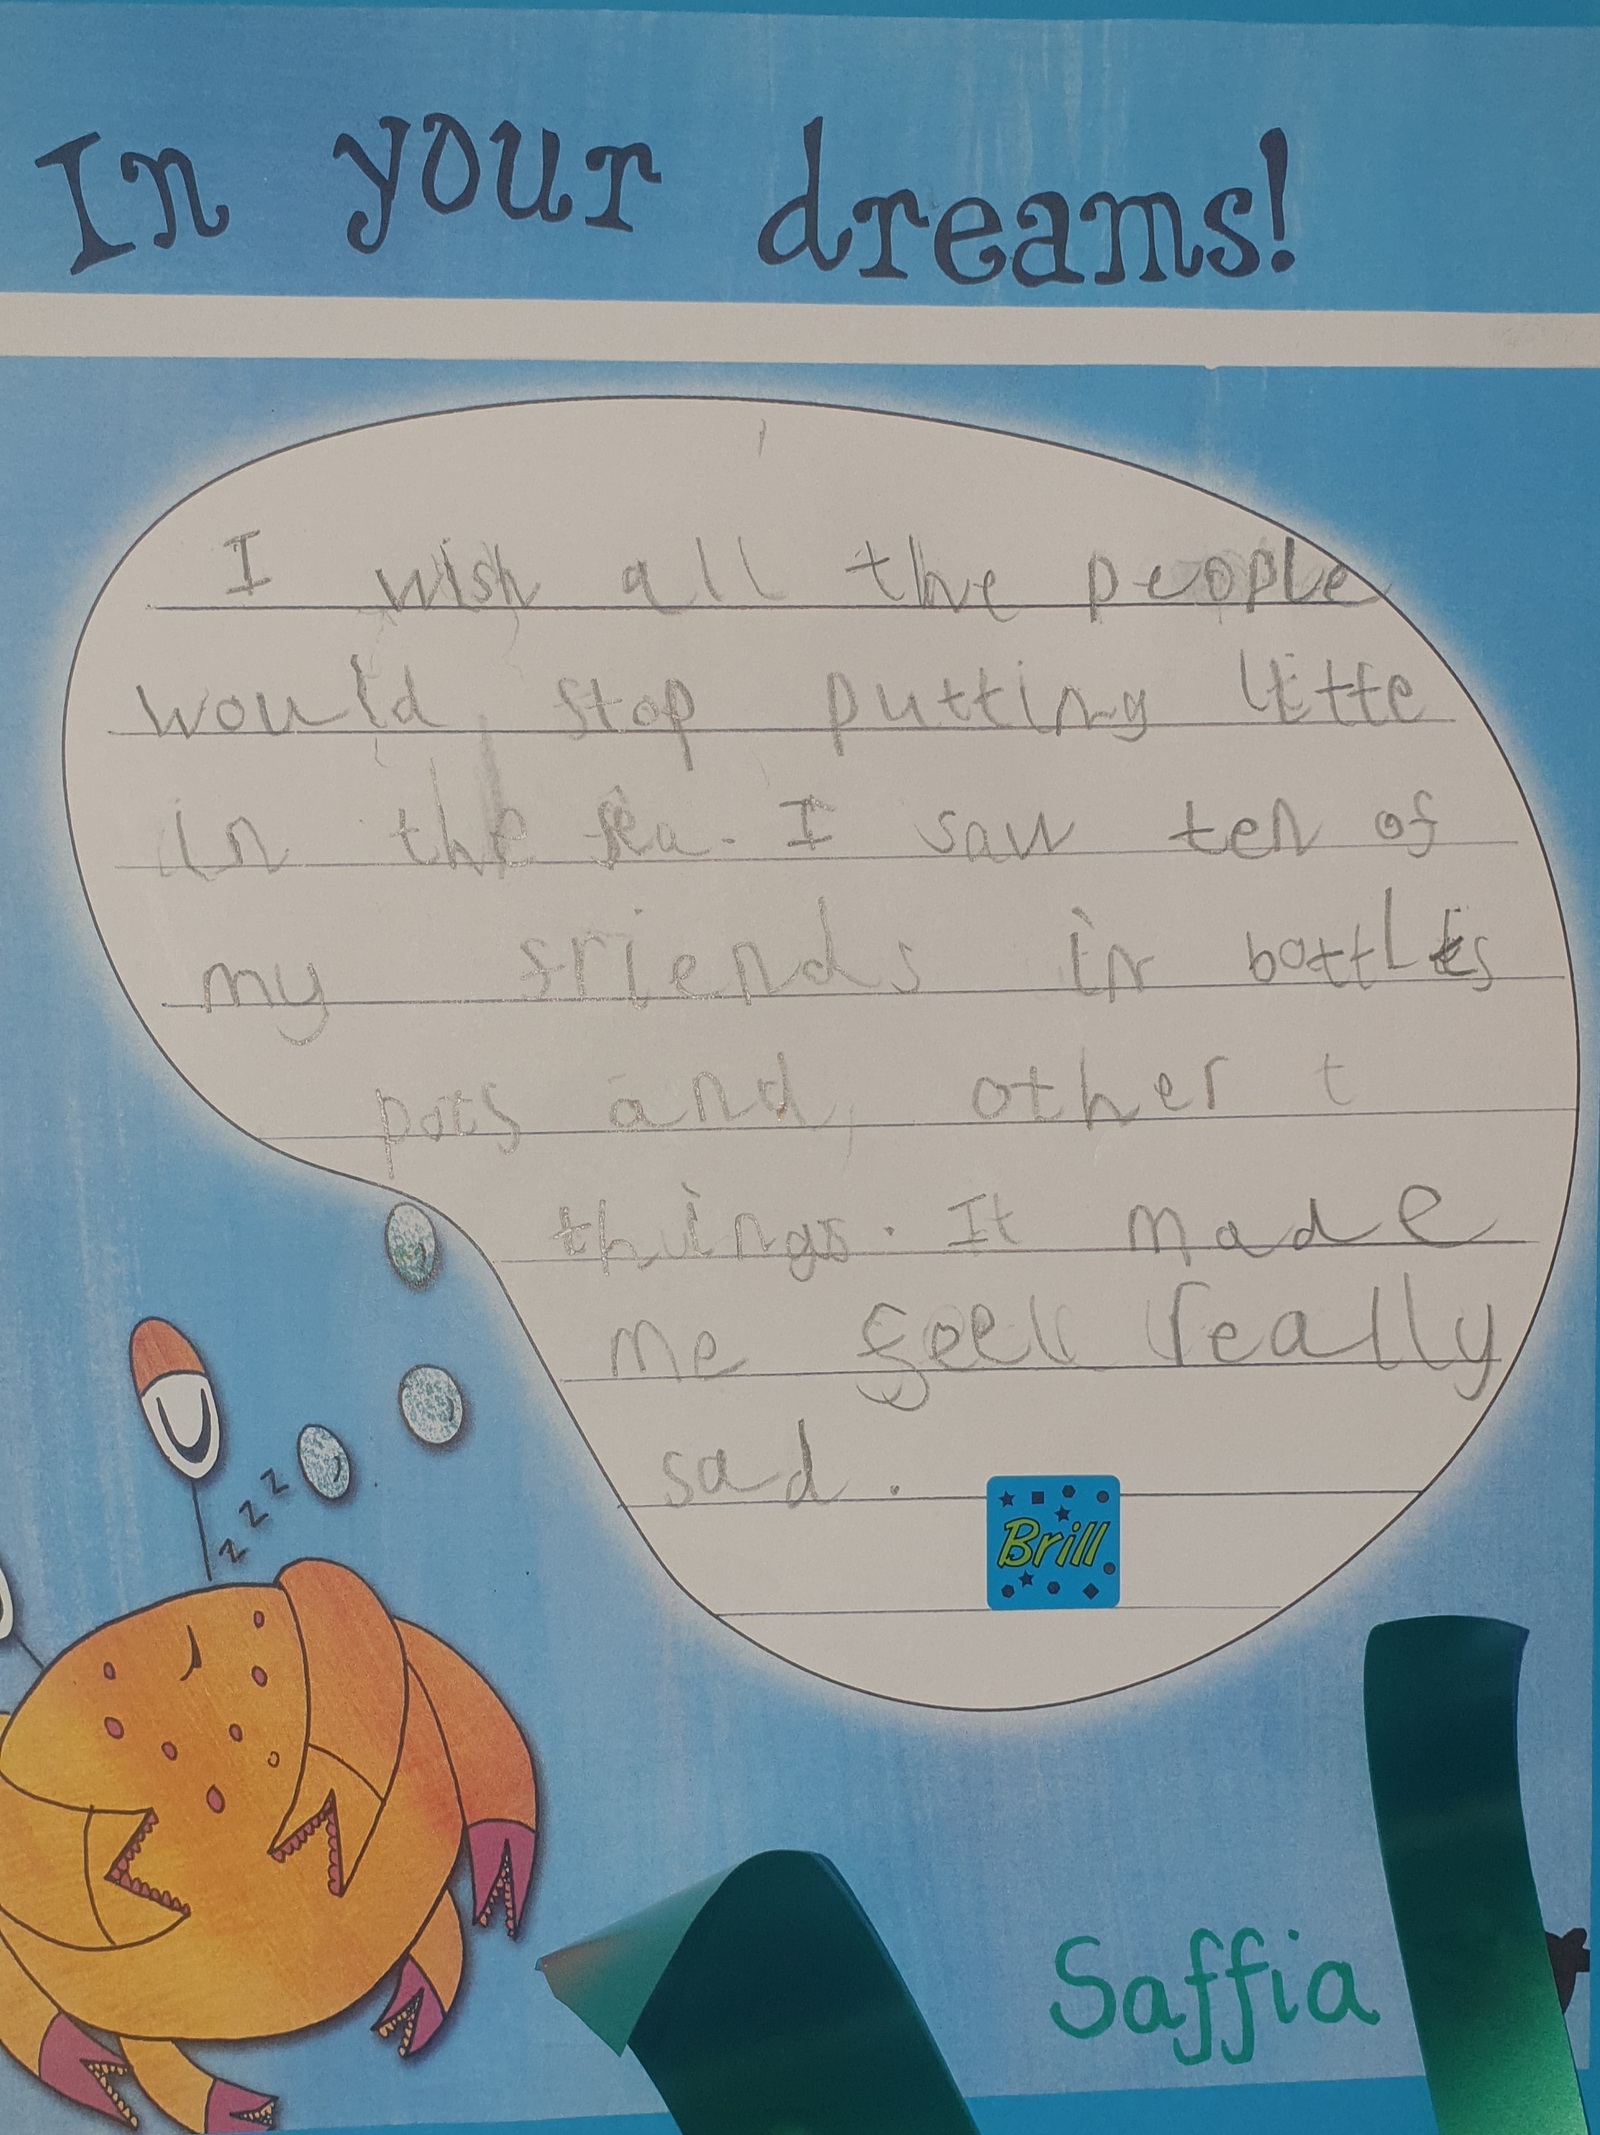 In your dreams!
I wish all the people
would stop putting litte
in the sea. I saw ten of
my friends in bottles
pots and other t
things. It made
me feel really
sad.
Brill
z z z
Saffia